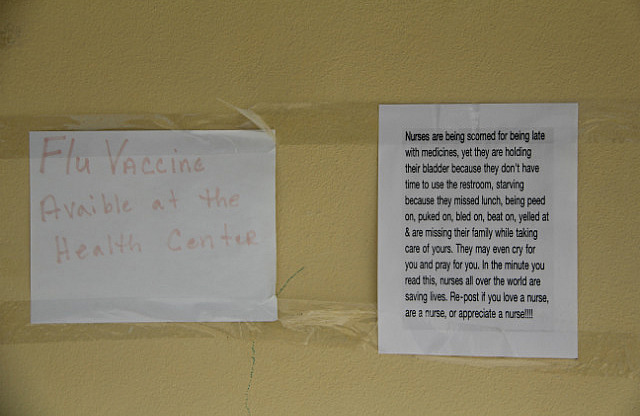 Flu Vaccine
Avaible at the
Health Center
Nurses are being scorned for being late
with medicines, yet they are holding
their bladder because they don't have
time to use the restroom, starving
because they missed lunch, being peed
on, puked on, bled on, beat on, yelled at
& are missing their family while taking
care of yours. They may even cry for
you and pray for you. In the minute you
read this, nurses all over the world are
saving lives. Re-post if you love a nurse,
are a nurse, or appreciate a nurse!!!!